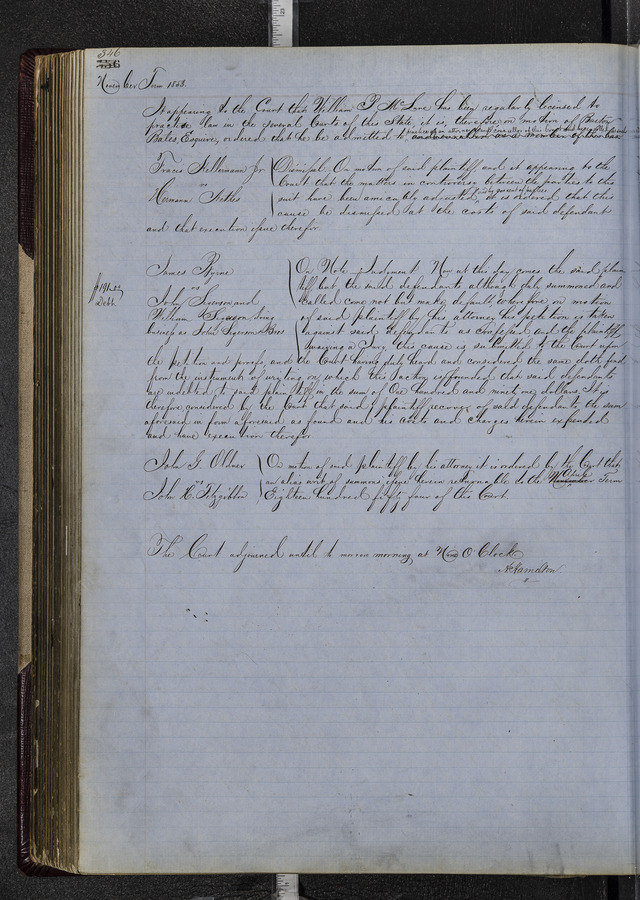 346
November Term 1853.
It appearing to the Court that William P. McLure has been regularly licensed to
practice law in the several Courts of this State, it is, therefore on motion of Barton
Bates, Esquire, ordered that he be admitted to
Hellermann Jr Dismissal. On motion of said plaintiff and it appearing to the
vs Court that the matters in controversy between the parties to this
Hermann suit have been amicably adjusted, it is ordered that this
cause be dismissed at the costs of said defendant
and that execution issue therefor.
James Byrne On Note Judgment. Now at this day comes the said plain
vs tiff but the said defendants although duly summoned and
John Sigerson and called come not but make default wherefore on motion
William Sigerson doing of said plaintiff by his attorney his petition is taken
business as John Sigerson & Bros against said defendants as confessed and the plaintiff
waiving a Jury this cause is submitted to the Court upon
$191.00
Debt
the petition and proofs, and the Court having duly heard and considered the same doth find
from the instrument of writing on which this action is founded that said defendants
are indebted to said plaintiff in the sum of One hundred and ninety one dollars It is
therefore considered by the Court that said plaintiff recover of said defendants the sum
aforesaid in form aforesaid as found and his costs and charges herein expended
and have execution therefor.
John G. On motion of said plaintiff by his attorney it is ordered by the Court that
vs an alias writ of summons issue herein returnable to the Term
John H. Fitzgibbon Eighteen hundred fifty four of this Court.
The Court adjourned until to morrow morning at O'Clock
A Hamilton